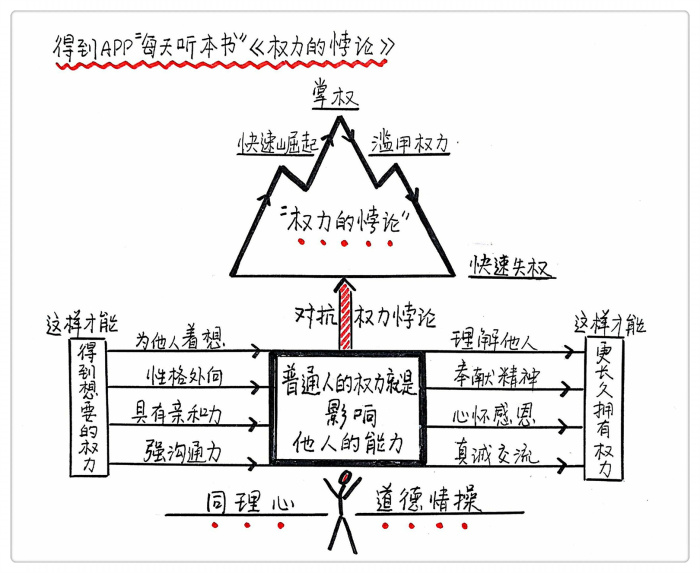 得到APP"每天听本书"《权力的悖论》
掌权
快速崛起
滥用权力
"权力的悖论"
快速失权
对抗 权力悖论
这样才能
得到想要的权力
为他人着想
性格外向
具有亲和力
强沟通力
普通人的权力就是
影响
他人的能力
理解他人
奉献精神
心怀感恩
真诚交流
这样才能
更长久拥有权力
同理心
道德情操